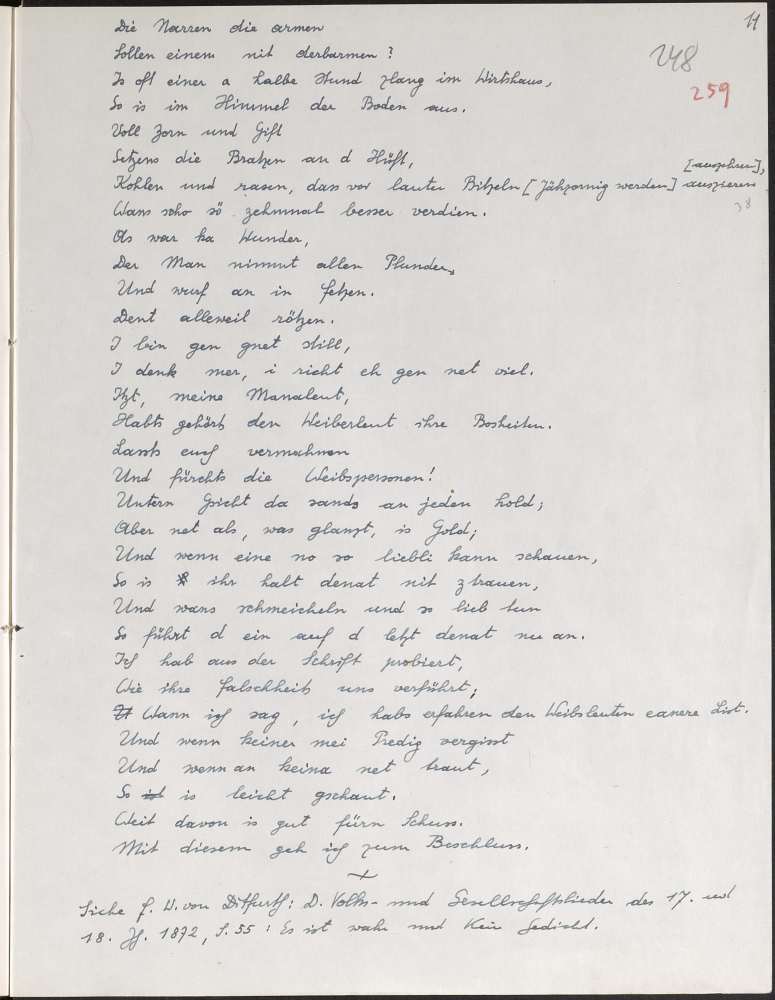 11
248
259
Die Narren die armen
Sollen einem nit derbarmen?
Is oft einer a halbe Stund zlang im Wirtshaus,
So is im Himmel der Boden aus.
Voll Zorn und Gift
Setzens die Bratzen an d Hüft,
[auszehren],
Kohlen und rasen, dass vor lauter Bitzeln [Jähzornig werden] auszieren
38
Wans scho sö zehnmal besser verdien.
Ob war ka Wunder,
Der Man nimmt allen Plunder,
Und wurf an in Fetzen.
Dent alleweil rötzen.
I bin gen gnet still,
I denk mer, i richt eh gen net viel.
Itzt, meine Manaleut,
Habts gehört den Weiberleut ihre Bosheiten.
Lassts euch vermahnen
Und fürchts die Weibspersonen!
Untern Gsicht da sands an jeden hold;
Aber net als, was glanzt, is Gold;
Und wenn eine no so liebli kann schauen,
So is ihr halt denat nit z trauen,
Und wans schmeicheln und so lieb tun
So führt d ein auf d letzt denat nu an.
Ich hab aus der Schrift probiert,
Wie ihre Falschheit uns verführt;
Wann ich sag, ich habs erfahren den Weibsleuten eanere List.
Und wenn keiner mei Predig vergisst
Und wenn an keina net traut,
So ist is leicht gschaut.
Weit davon is gut fürn Schuss.
Mit diesem geh ich zum Beschluss.
Siehe F. W. von Ditfurth: D. Volks- und Gesellschaftslieder des 17. und
18. Jh. 1872, S. 55: Es ist wahr und kein Gedicht.